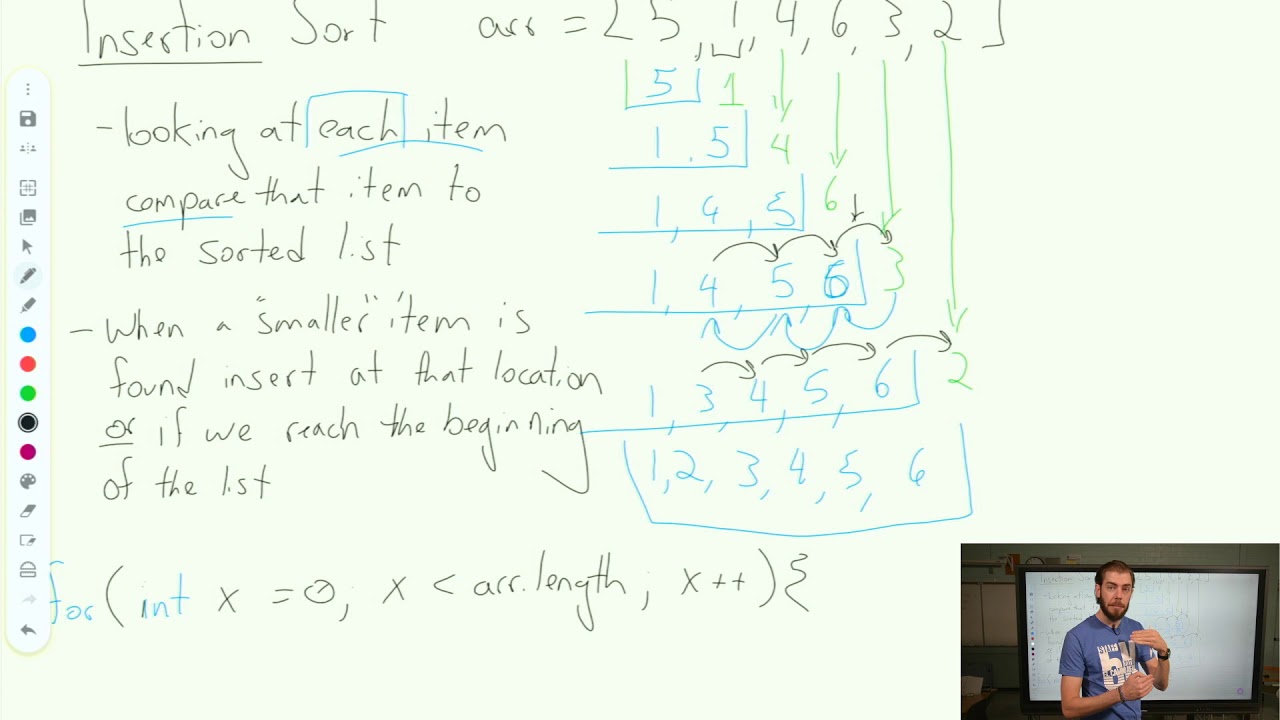 Insertion Sort arr = [5, 1, 4, 6, 3, 2]
5 1
- looking at each item
1, 5 4
compare that item to
1, 4, 5 6
the sorted list
1, 4, 5, 6 3
- when a "smaller" item is
found insert at that location
1, 3, 4, 5, 6 2
or if we reach the beginning
of the list
1, 2, 3, 4, 5, 6
for (int x = 0; x < arr.length; x++){